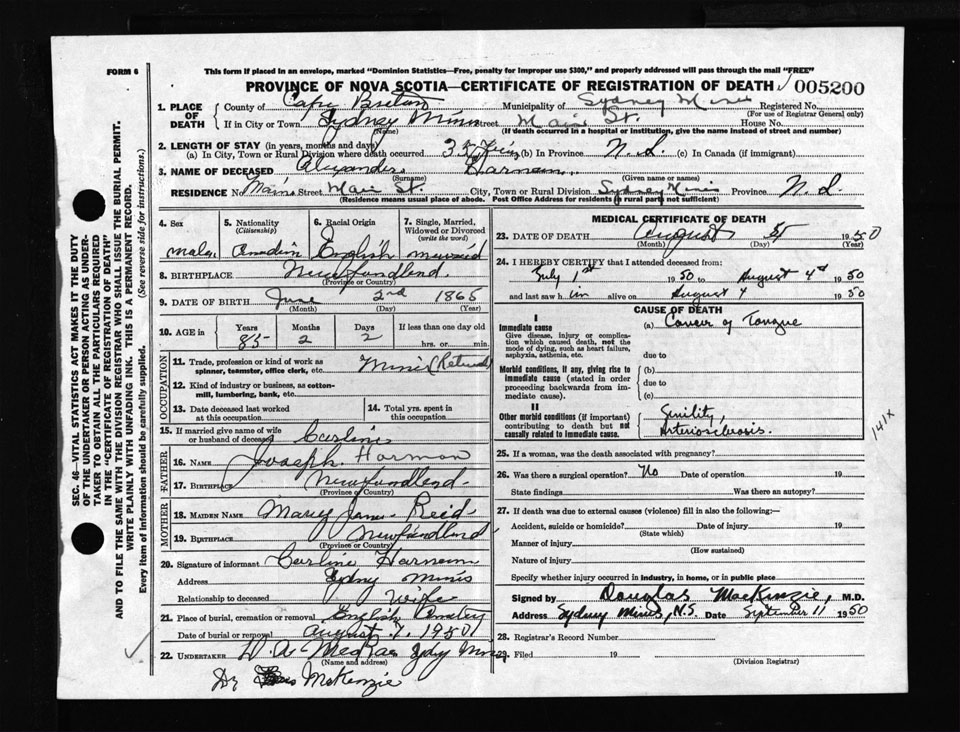 FORM 6
This form if placed in an envelope, marked "Dominion Statistics—Free, penalty for improper use $300," and properly addressed will pass through the mail "FREE"
PROVINCE OF NOVA SCOTIA—CERTIFICATE OF REGISTRATION OF DEATH 005200
1. PLACE OF DEATH
County of Cape Breton Municipality of Sydney Mines Registered No.
(For use of Registrar General only)
If in City or Town Sydney Mines Street Main St. House No.
(Name) (If death occurred in a hospital or institution, give the name instead of street and number)
2. LENGTH OF STAY (in years, months and days)
(a) In City, Town or Rural Division where death occurred 35 (b) In Province N.S. (c) In Canada (if immigrant)
3. NAME OF DECEASED Alexander Harmon
(Surname) (Given name or names)
RESIDENCE No. Main Street Main St. City, Town or Rural Division Sydney Mines Province N.S.
(Residence means usual place of abode. Post Office Address for residents in rural parts not sufficient)
4. Sex
male
5. Nationality
(Citizenship)
6. Racial Origin
English
7. Single, Married, Widowed or Divorced
(write the word)
married
8. BIRTHPLACE Newfundlend.
(Province or Country)
9. DATE OF BIRTH June 2nd 1865
(Month) (Day) (Year)
10. AGE in
Years Months Days If less than one day old
85 2 2 hrs. or min.
OCCUPATION
11. Trade, profession or kind of work as spinner, teamster, office clerk, etc. (Retired)
12. Kind of industry or business, as cotton-mill, lumbering, bank, etc.
13. Date deceased last worked at this occupation
14. Total yrs. spent in this occupation
15. If married give name of wife or husband of deceased
FATHER
16. NAME Joseph Harmon
17. BIRTHPLACE Newfundlend.
(Province or Country)
MOTHER
18. MAIDEN NAME Mary Jane Reid
19. BIRTHPLACE Newfundlend
(Province or Country)
20. Signature of informant
Address Sydny Mines
Relationship to deceased Wife
21. Place of burial, cremation or removal English Cemetery
Date of burial or removal August 7, 1950
22. UNDERTAKER
(Name and address)
Dr McKenzie
MEDICAL CERTIFICATE OF DEATH
23. DATE OF DEATH August 5 1950
(Month) (Day) (Year)
24. I HEREBY CERTIFY that I attended deceased from:
July 1st 1950 to August 4 1950
and last saw him alive on August 4 1950
CAUSE OF DEATH
I
Immediate cause
Give disease, injury or complication which caused death, not the mode of dying, such as heart failure, asphyxia, asthenia, etc.
(a) Cancer of Tongue
due to
Morbid conditions, if any, giving rise to immediate cause (stated in order proceeding backwards from immediate cause).
(b)
due to
(c)
II
Other morbid conditions (if important) contributing to death but not causally related to immediate cause.
Senility,
Arteriosclerosis.
141X
25. If a woman, was the death associated with pregnancy?
26. Was there a surgical operation? No Date of operation 19
State findings Was there an autopsy?
27. If death was due to external causes (violence) fill in also the following:—
Accident, suicide or homicide? Date of injury 19
(State which)
Manner of injury
(How sustained)
Nature of injury
Specify whether injury occurred in industry, in home, or in public place
Signed by Douglas MacKenzie, M.D.
Address Sydney Mines, N.S. Date September 11 1950
28. Registrar's Record Number
29. Filed 19
(Division Registrar)
SEC. 46—VITAL STATISTICS ACT MAKES IT THE DUTY
OF THE UNDERTAKER OR PERSON ACTING AS UNDERTAKER
TO OBTAIN ALL THE PARTICULARS REQUIRED
IN THE "CERTIFICATE OF REGISTRATION OF DEATH"
AND TO FILE THE SAME WITH THE DIVISION REGISTRAR WHO SHALL ISSUE THE BURIAL PERMIT.
WRITE PLAINLY WITH UNFADING INK. THIS IS A PERMANENT RECORD.
Every item of information should be carefully supplied. (See reverse side for instructions.)